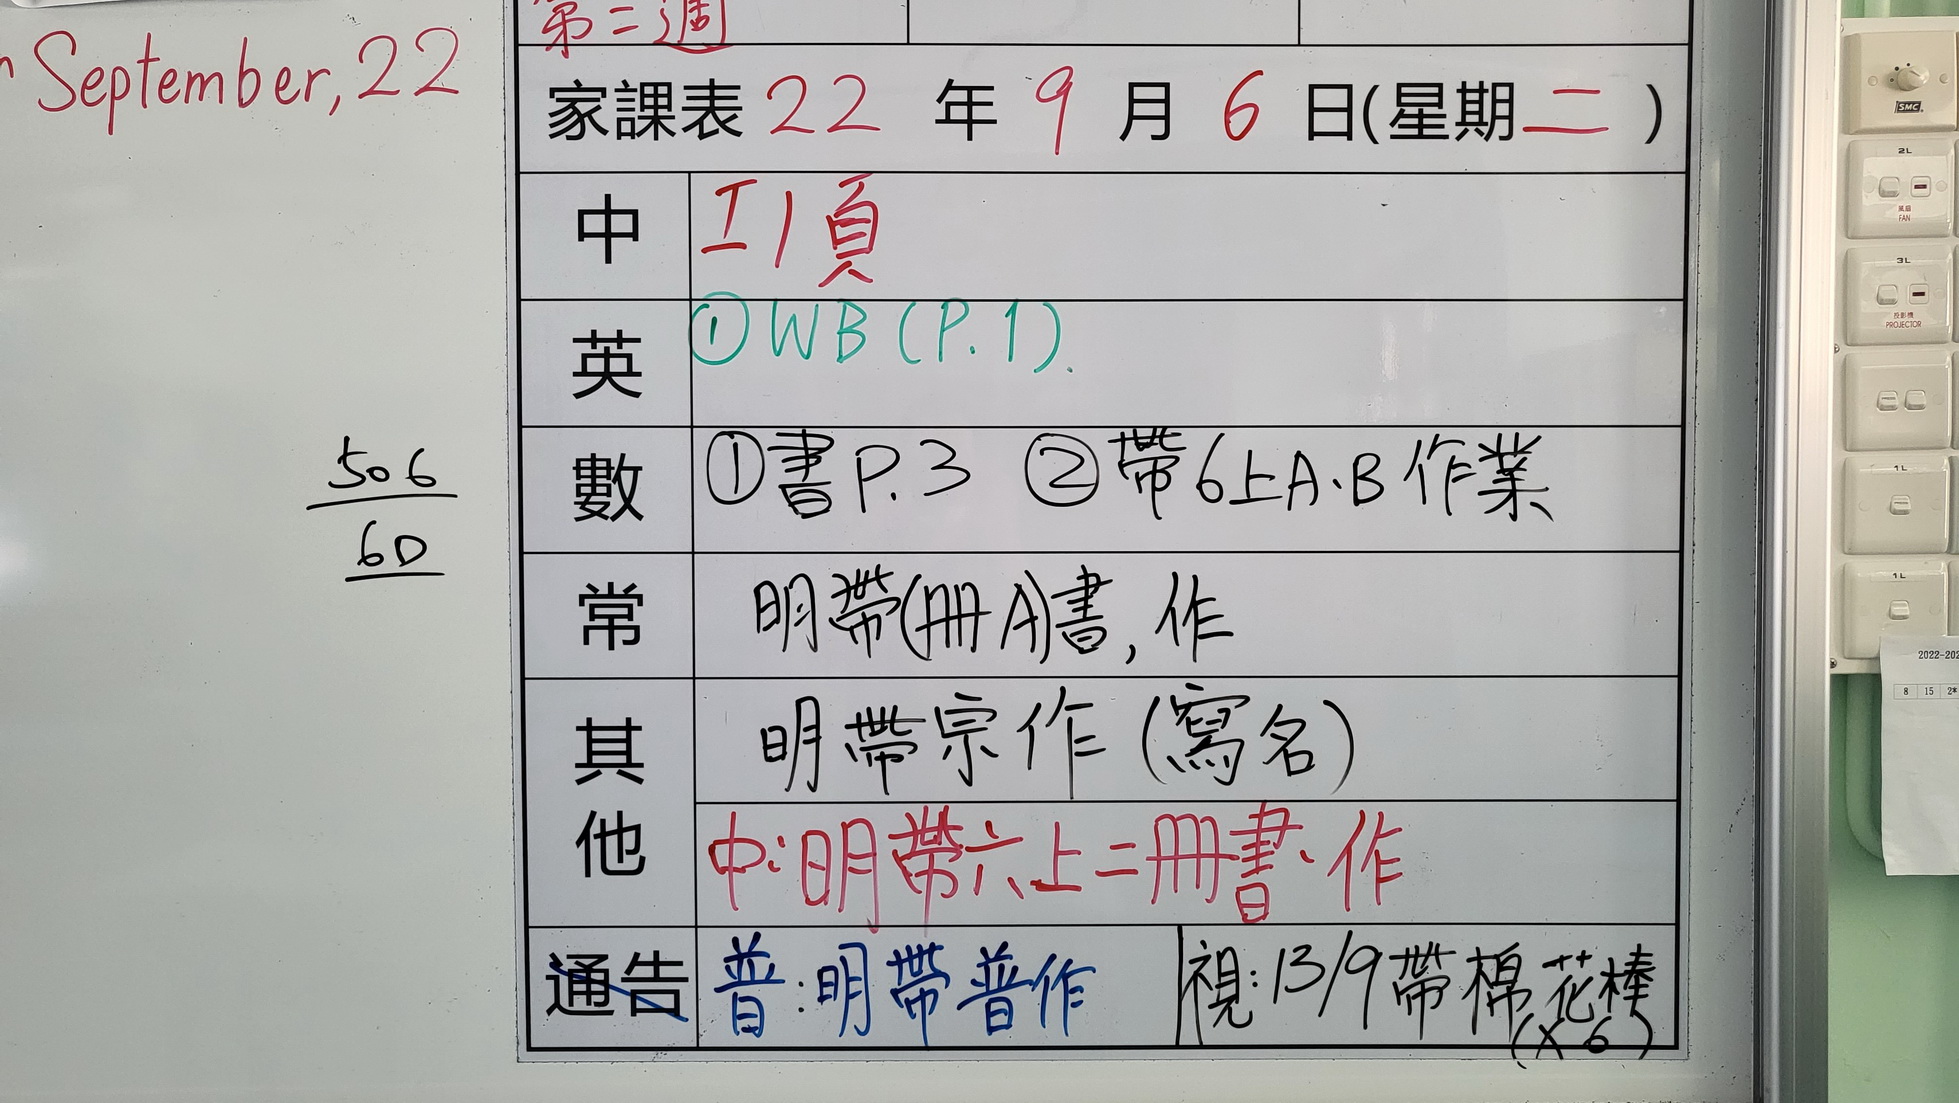 September, 22
第二週
家課表 22 年 9 月 6 日(星期二)
中 工1頁
英 ①WB (P.1).
數 ①書P.3 ②帶6上A、B作業
506
6D
常 明帶(冊A)書,作
其他 明帶宗作(寫名)
中:明帶六上二冊書、作
通告 普:明帶普作 視:13/9帶棉花棒
(x6)
SMC
2L
風扇
FAN
3L
投影機
PROJECTOR
1L
1L
2022-202
8 15 2*